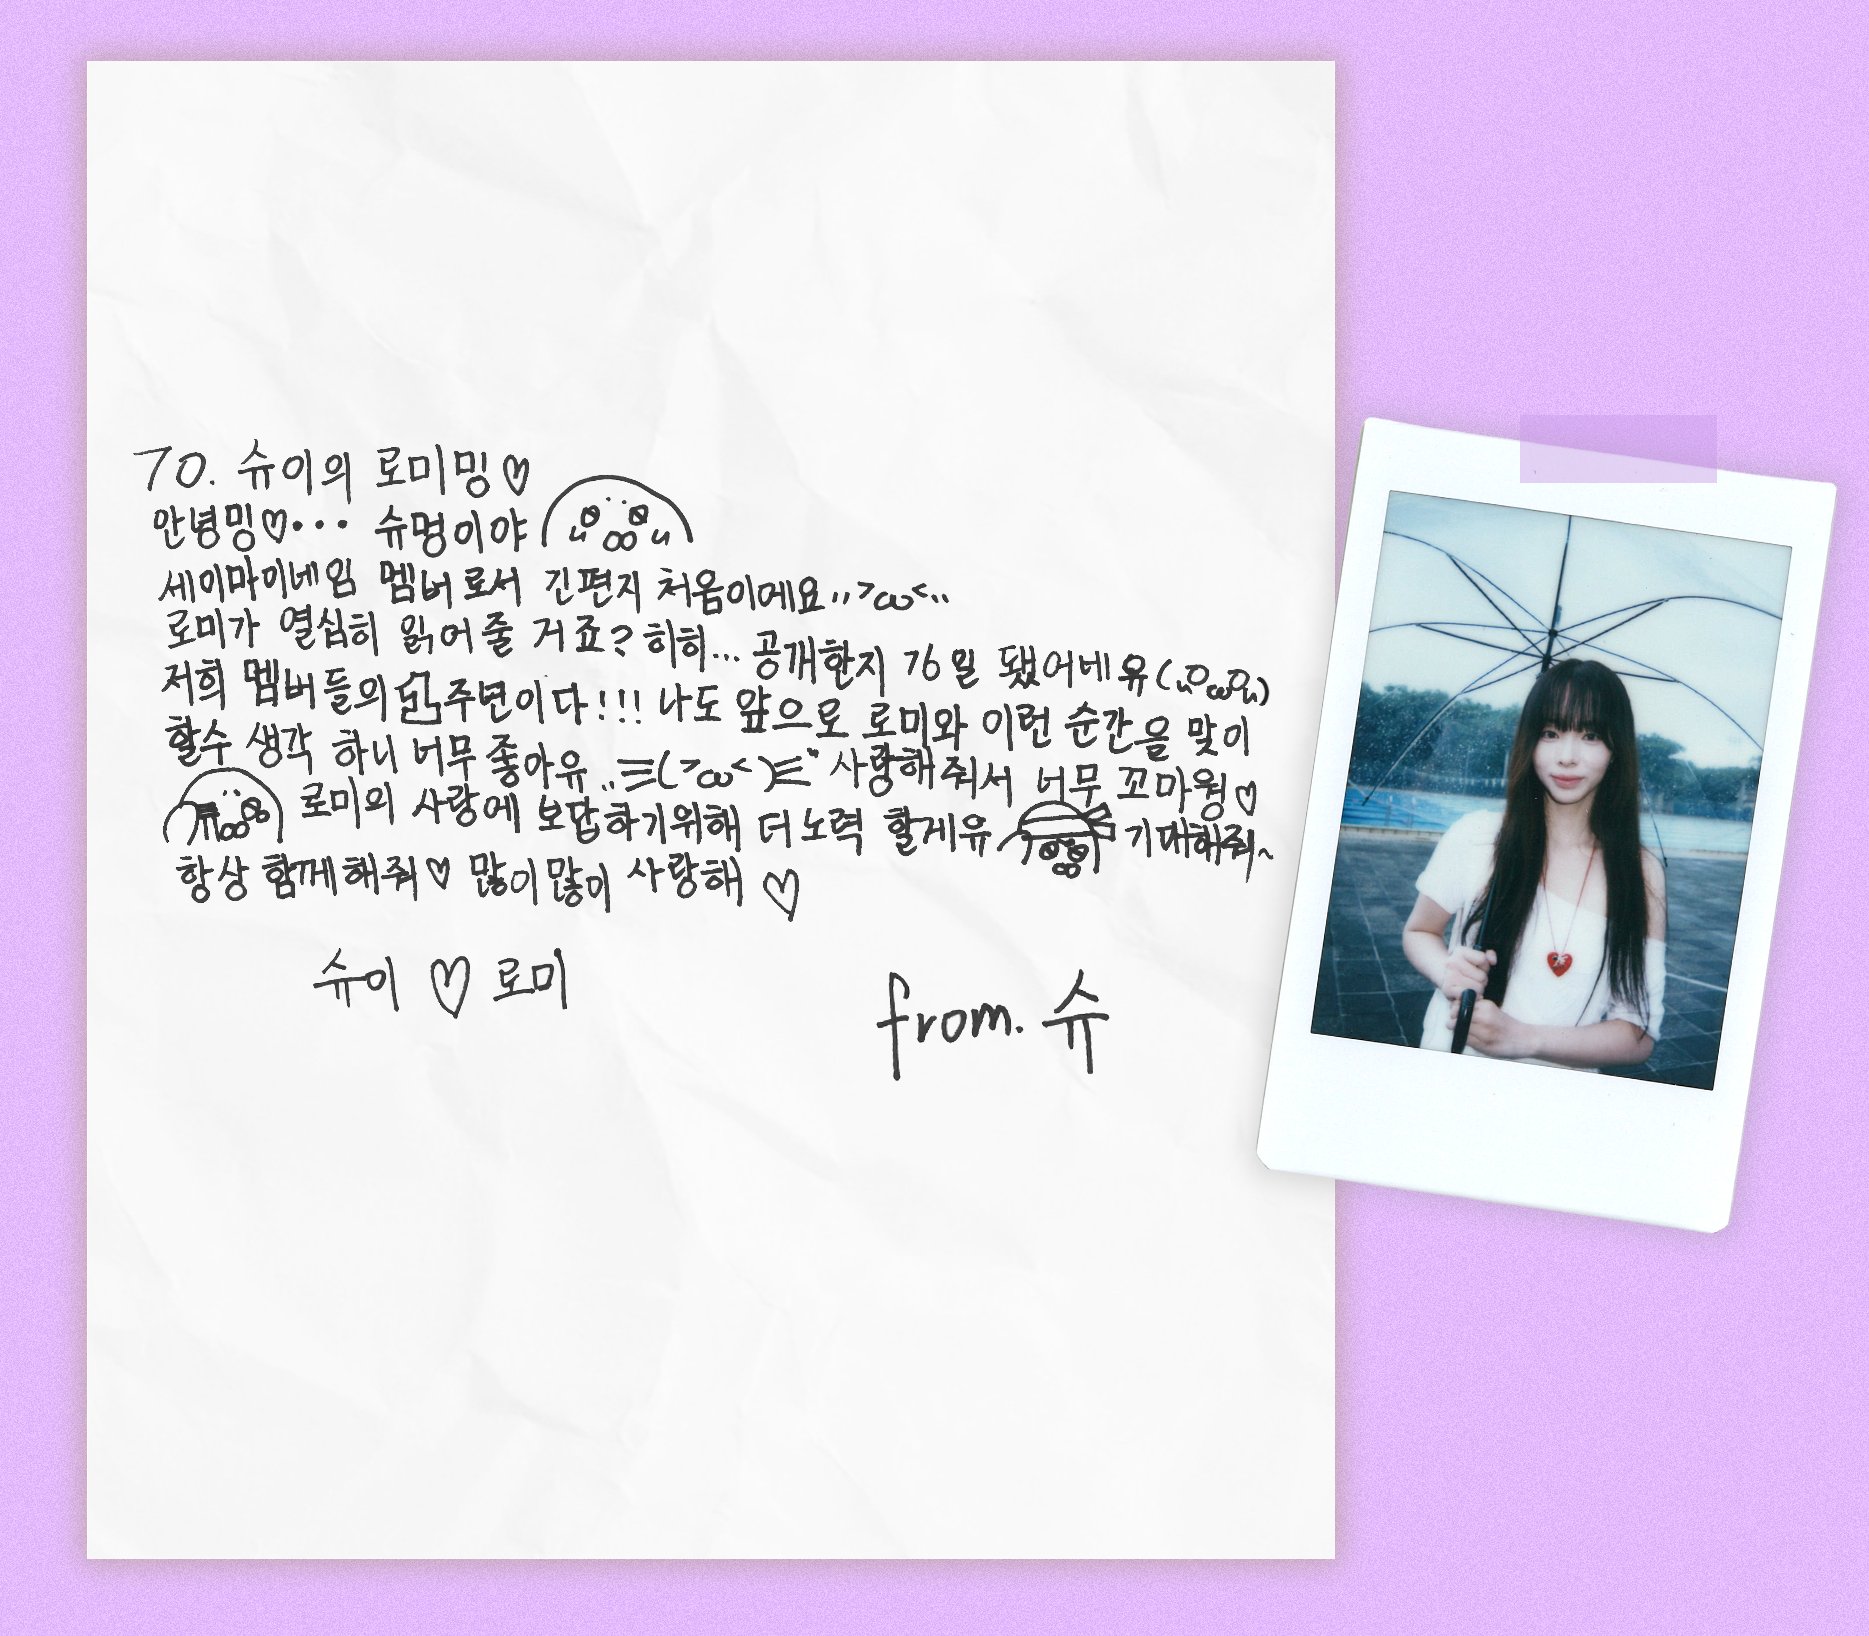 TO. 슈이의 로미밍♡
안녕밍♡••• 슈멍이야
세이마이네임 멤버로서 긴편지 처음이에요..>ω<..
로미가 열심히 읽어줄 거죠? 히히... 공개한지 76일 됐어네유
저희 멤버들의 주년이다!!! 나도 앞으로 로미와 이런 순간을 맞이
할수 생각 하니 너무 좋아유..三(>ω<)三 사랑해줘서 너무 꼬마웡♡
로미의 사랑에 보답하기위해 더 노력 할게유 기대해줘~
항상 함께해줘♡ 많이많이 사랑해 ♡
슈이 ♡ 로미
from. 슈